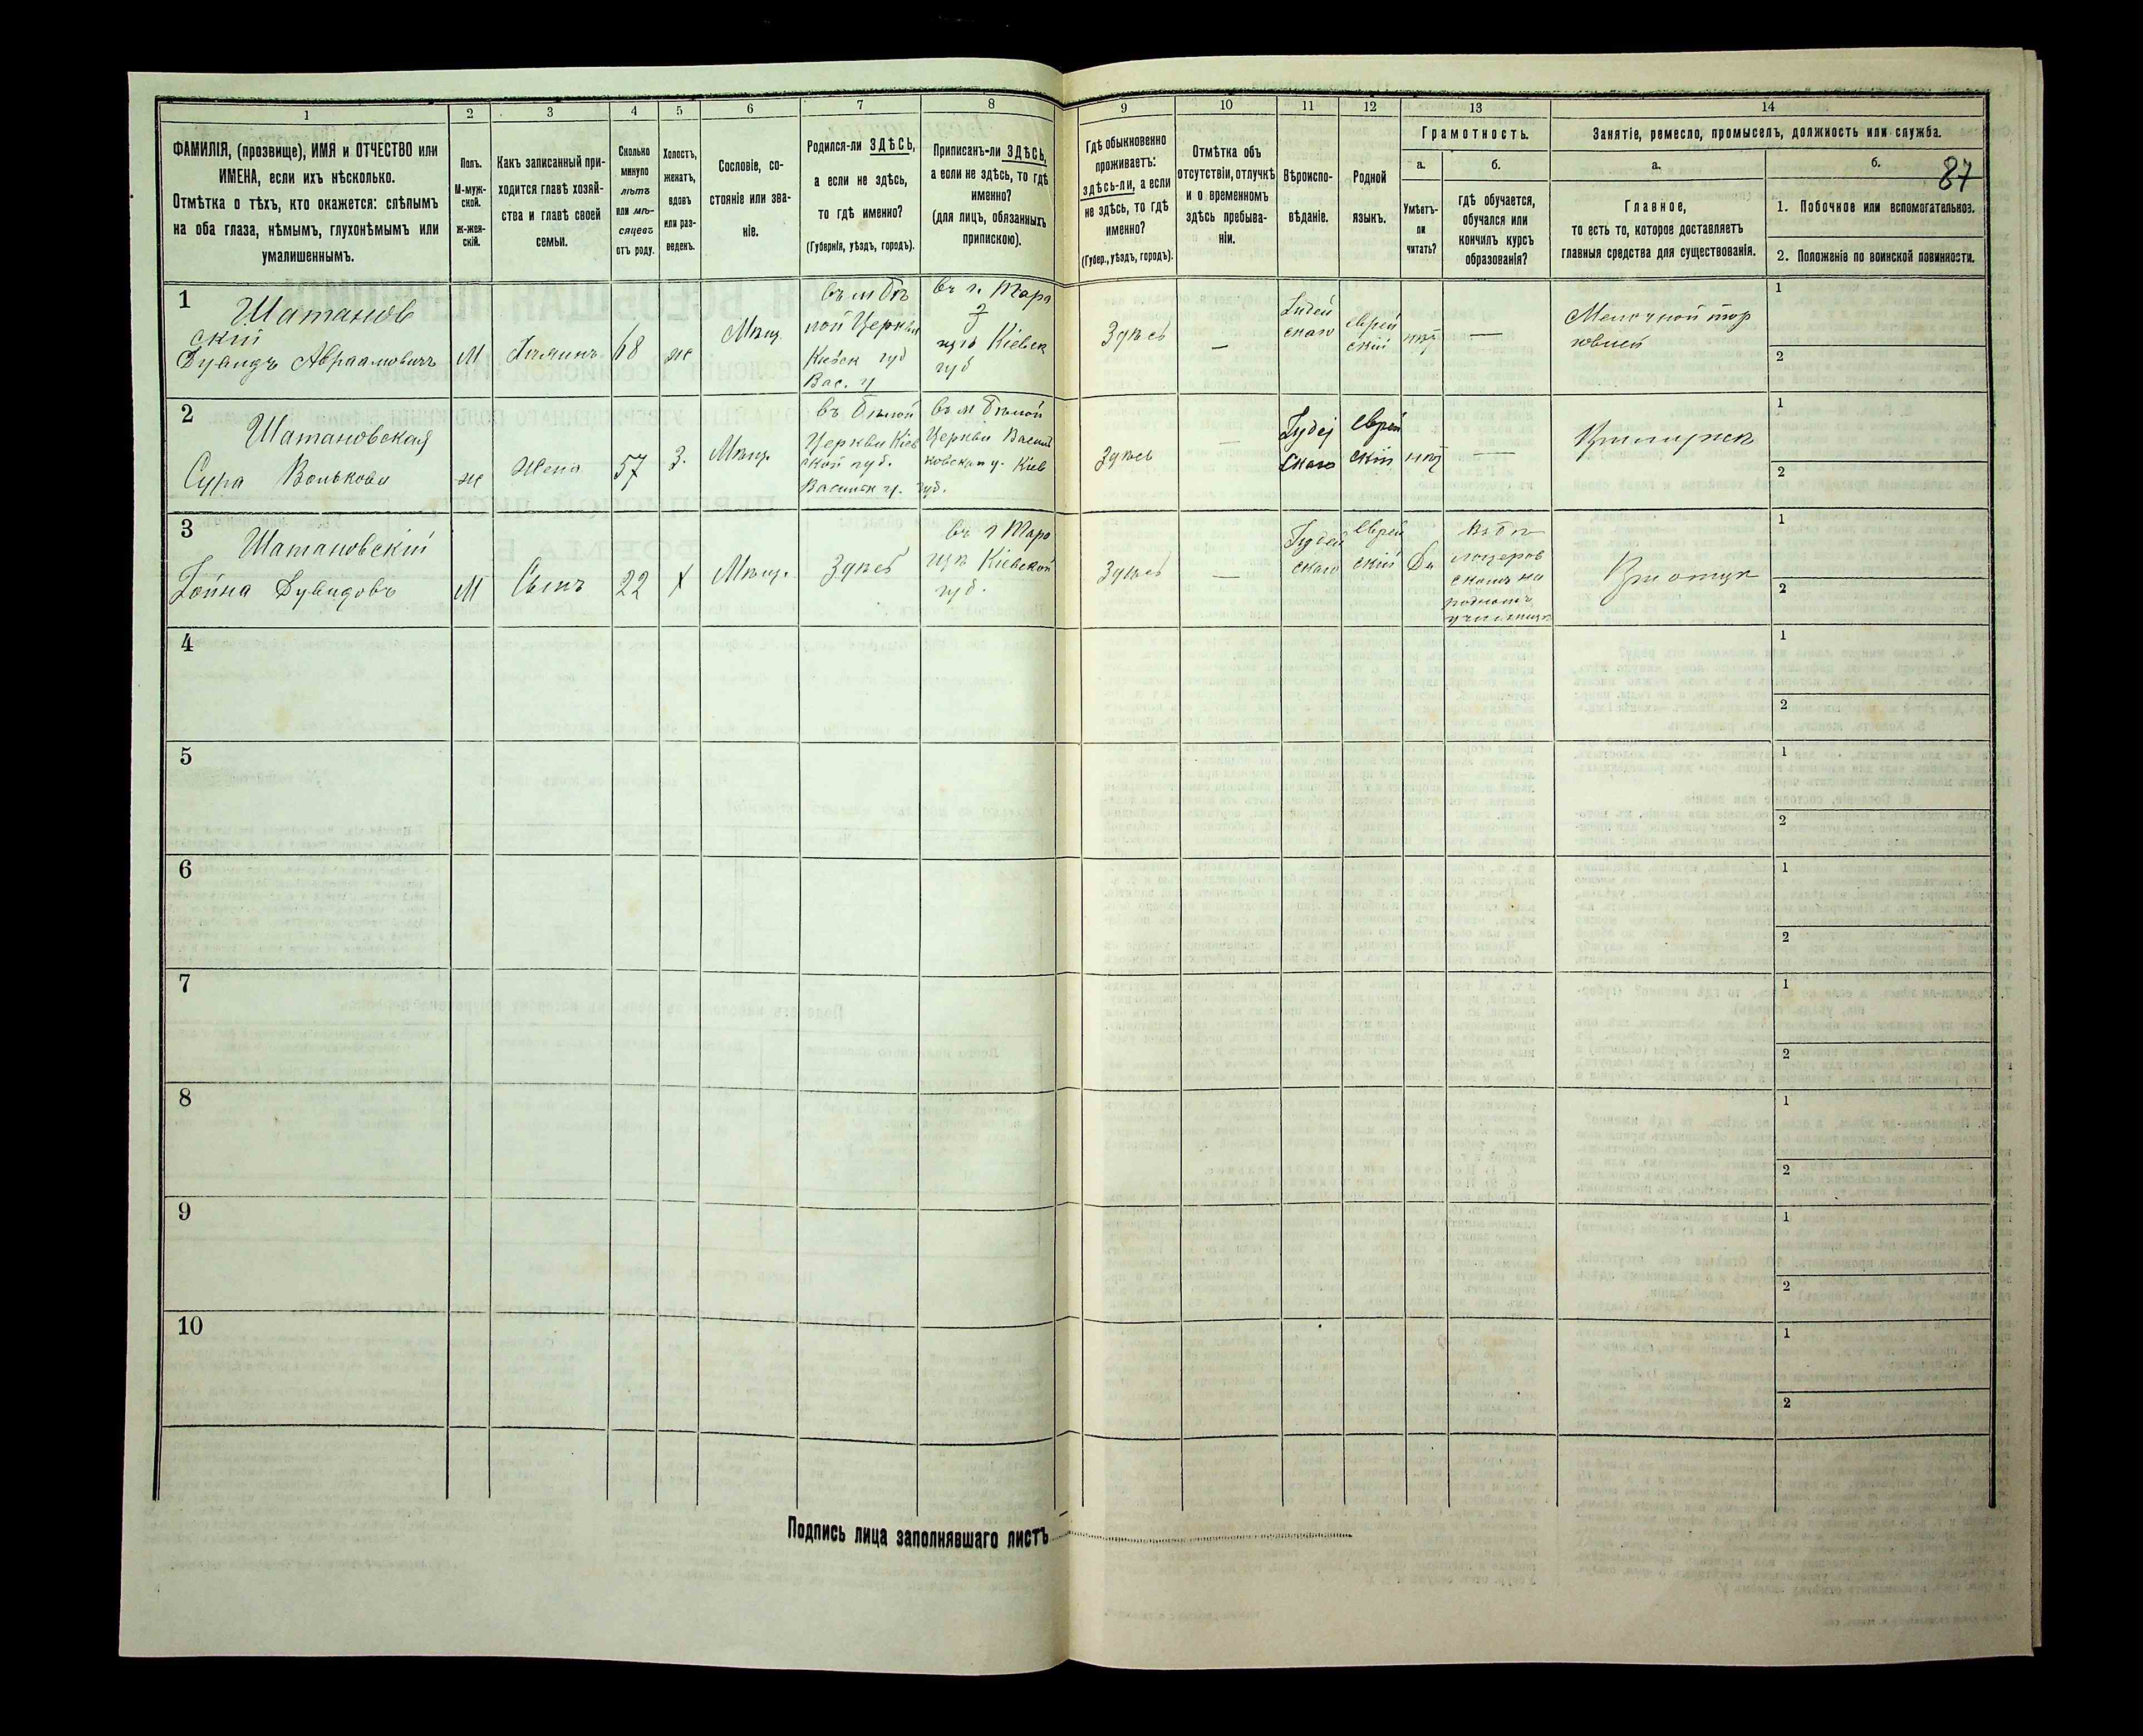 1
2
3
4
5
6
7
8
9
10
11
12
13
14
ФАМИЛІЯ, (прозвище), ИМЯ и ОТЧЕСТВО или
ИМЕНА, если ихъ нѣсколько.
Отмѣтка о тѣхъ, кто окажется: слѣпымъ
на оба глаза, нѣмымъ, глухонѣмымъ или
умалишеннымъ.
Полъ.
М-муж-
ской.
ж-жен-
скій.
Какъ записанный при-
ходится главѣ хозяй-
ства и главѣ своей
семьи.
Сколько
минуло
лѣтъ
или мѣ-
сяцевъ
отъ роду.
Холостъ,
женатъ,
вдовъ
или раз-
веденъ.
Сословіе, со-
стояніе или зва-
ніе.
Родился-ли ЗДѢСЬ,
а если не здѣсь,
то гдѣ именно?
(Губернія, уѣздъ, городъ).
Приписанъ-ли ЗДѢСЬ,
а если не здѣсь, то гдѣ
именно?
(для лицъ, обязанныхъ
припискою).
Гдѣ обыкновенно
проживаетъ:
здѣсь-ли, а если
не здѣсь, то гдѣ
именно?
(Губер., уѣздъ, городъ).
Отмѣтка объ
отсутствіи, отлучкѣ
и о временномъ
здѣсь пребыва-
ніи.
Вѣроиспо-
вѣданіе.
Родной
языкъ.
Грамотность.
а.
Умѣетъ-
ли
читать?
б.
гдѣ обучается,
обучался или
кончилъ курсъ
образованія?
Занятіе, ремесло, промыселъ, должность или служба.
а.
Главное,
то есть то, которое доставляетъ
главныя средства для существованія.
б.
87
1. Побочное или вспомогательное.
2. Положеніе по воинской повинности.
1
Шатанов
скій
Дувидъ Авраамовичъ
М
68
ж
Мѣщ.
въ м Бѣ
лой Церкви
Кіевск губ
Вас. у
въ г. Тара
щѣ Кіевск
губ
Здѣсь
—
Іудей
скаго
еврей
скій
нѣтъ
—
Мелочной тор
говлей
1
2
2
Шатановская
Сура Волькова
ж
Жена
57
З.
Мѣщ.
въ Бѣлой
Церкви Кіев
ской губ.
Васильк у.
въ м Бѣлой
Церкви Василь
ковскаго у. Кіев
губ.
Здѣсь
—
Іудей
скаго
еврей
скій
нѣтъ
—
При мужѣ
1
2
3
Шатановскій
Гойна Дувидовъ
М
Сынъ
22
Х
Мѣщ.
Здѣсь
въ г Тара
щѣ Кіевской
губ.
Здѣсь
—
Іудей
скаго
Еврей
скій
Да
въ бѣ
лоцерков
скомъ на
родномъ
училищѣ
При отцѣ
1
2
4
1
2
5
1
2
6
1
2
7
1
2
8
1
2
9
1
2
10
1
2
Подпись лица заполнявшаго листъ